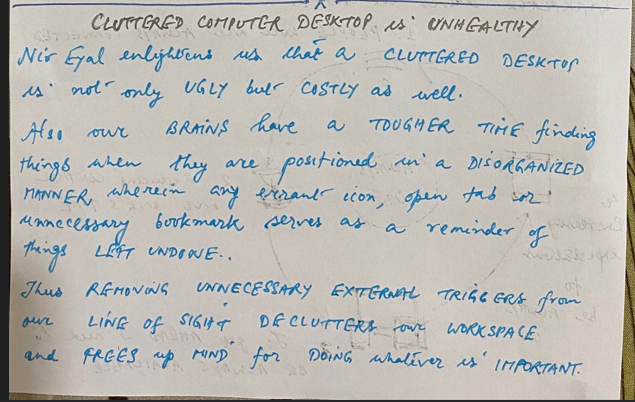 CLUTTERED COMPUTER DESKTOP is UNHEALTHY
Nir Eyal enlightens us that a CLUTTERED DESKTOP
is not only UGLY but COSTLY as well.
Also our BRAINS have a TOUGHER TIME finding
things when they are positioned in a DISORGANIZED
MANNER wherein any errant icon, open tab or
unnecessary bookmark serves as a reminder of
things LEFT UNDONE..
Thus REMOVING UNNECESSARY EXTERNAL TRIGGERS from
our LINE OF SIGHT DECLUTTERS our WORKSPACE
and FREES up MIND for DOING whatever is IMPORTANT.